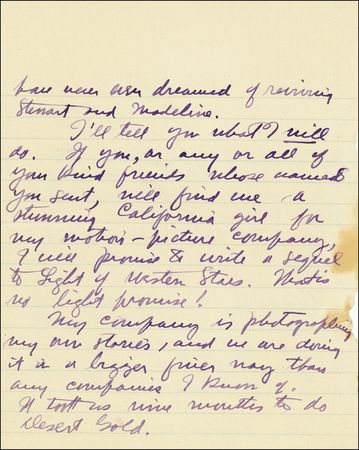 have never even dreamed of reviving
Stewart and Madeline.
I'll tell you what I will
do. If you, or any or all of
your kind friends whose names
you sent, will find me a
stunning California girl for
my motion-picture company,
I will promise to write a sequel
to Light of Western Stars. That is
no light promise!
My company is photographing
my own stories, and we are doing
it in a bigger finer way than
any companies I know of.
It took us nine months to do
Desert Gold.